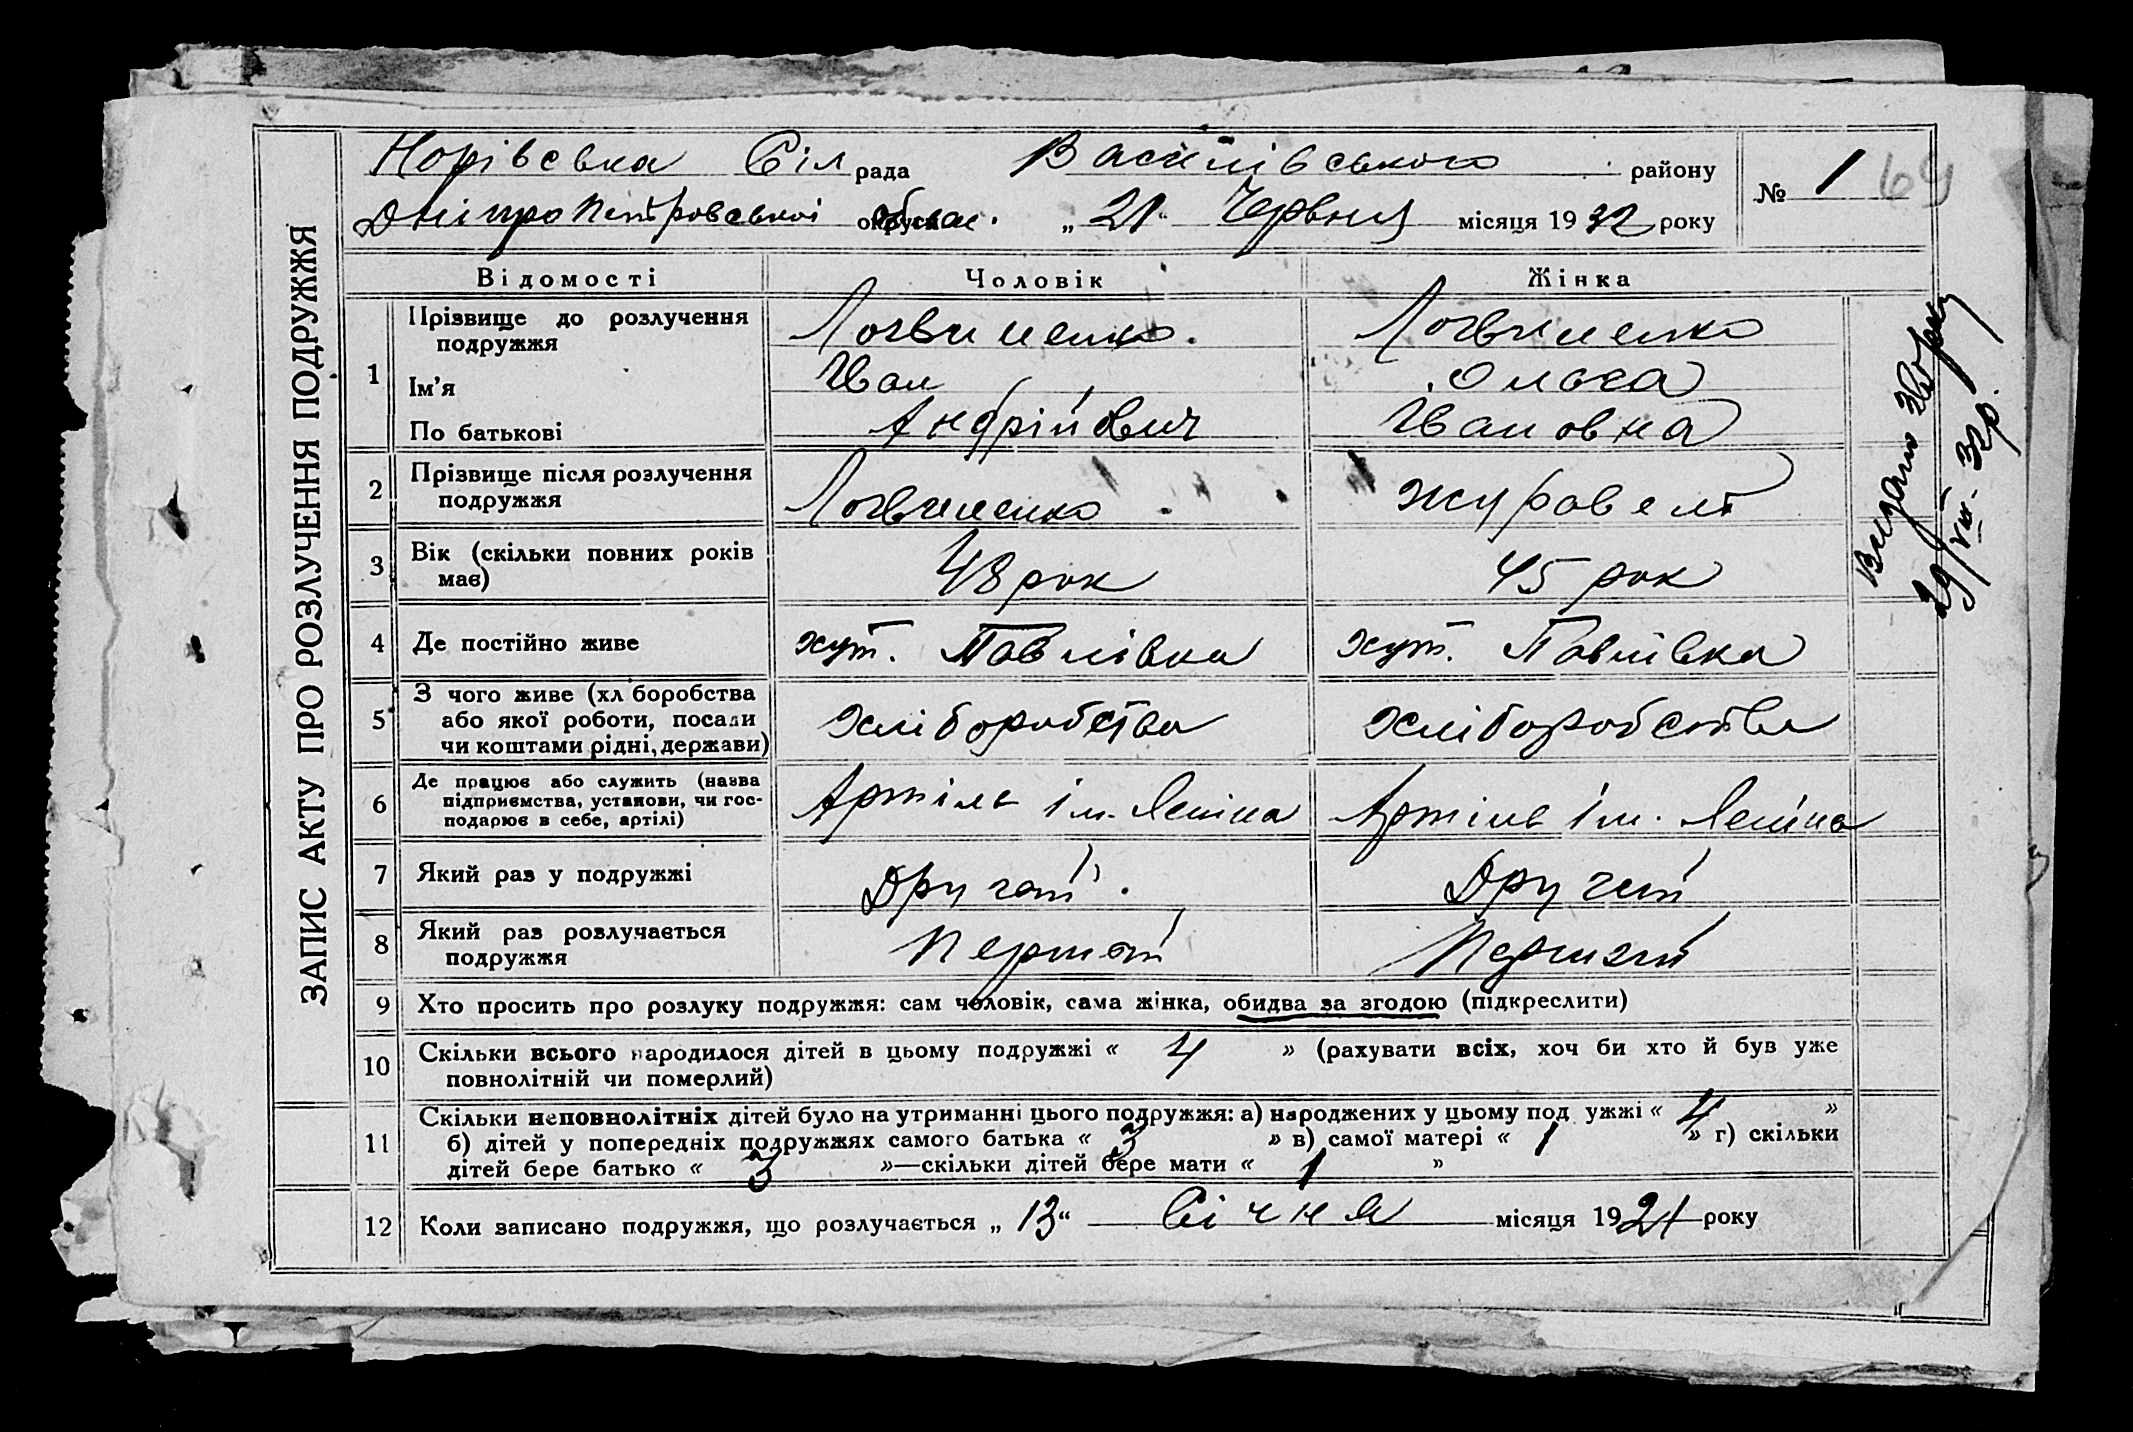 ЗАПИС АКТУ ПРО РОЗЛУЧЕННЯ ПОДРУЖЖЯ
Норівська Сіл рада Василівського району № 1 69
Дніпропетровської облас. „ 21 “ Червня місяця 1932 року
Відомості Чоловік Жінка
1 Прізвище до розлучення подружжя Логвиненко. Логвиненко
Ім'я Іван Ольга
По батькові Андрійович Івановна
2 Прізвище після розлучення
подружжя Логвиненко Журавель
3 Вік (скільки повних років
має) 48 рок 45 рок
4 Де постійно живе хут. Павлівка хут. Павлівка
5 З чого живе (хліборобства
або якої роботи, посади
чи коштами рідні, держави) Хліборобства Хліборобства
6 Де працює або служить (назва
підприємства, установи, чи гос-
подарює в себе, артілі) Артіль ім. Леніна Артіль ім. Леніна
7 Який раз у подружжі Другий. Другий
8 Який раз розлучається
подружжя Перший Перший
9 Хто просить про розлуку подружжя: сам чоловік, сама жінка, обидва за згодою (підкреслити)
10 Скільки всього народилося дітей в цьому подружжі « 4 » (рахувати всіх, хоч би хто й був уже
повнолітній чи померлий)
11 Скільки неповнолітніх дітей було на утриманні цього подружжя: а) народжених у цьому под ужжі « 4 »
б) дітей у попередніх подружжях самого батька « 3 » в) самої матері « 1 » г) скільки
дітей бере батько « 3 »—скільки дітей бере мати « 1 »
12 Коли записано подружжя, що розлучається „ 13 “ Січня місяця 1921 року
Видано
29/VIII-32р.